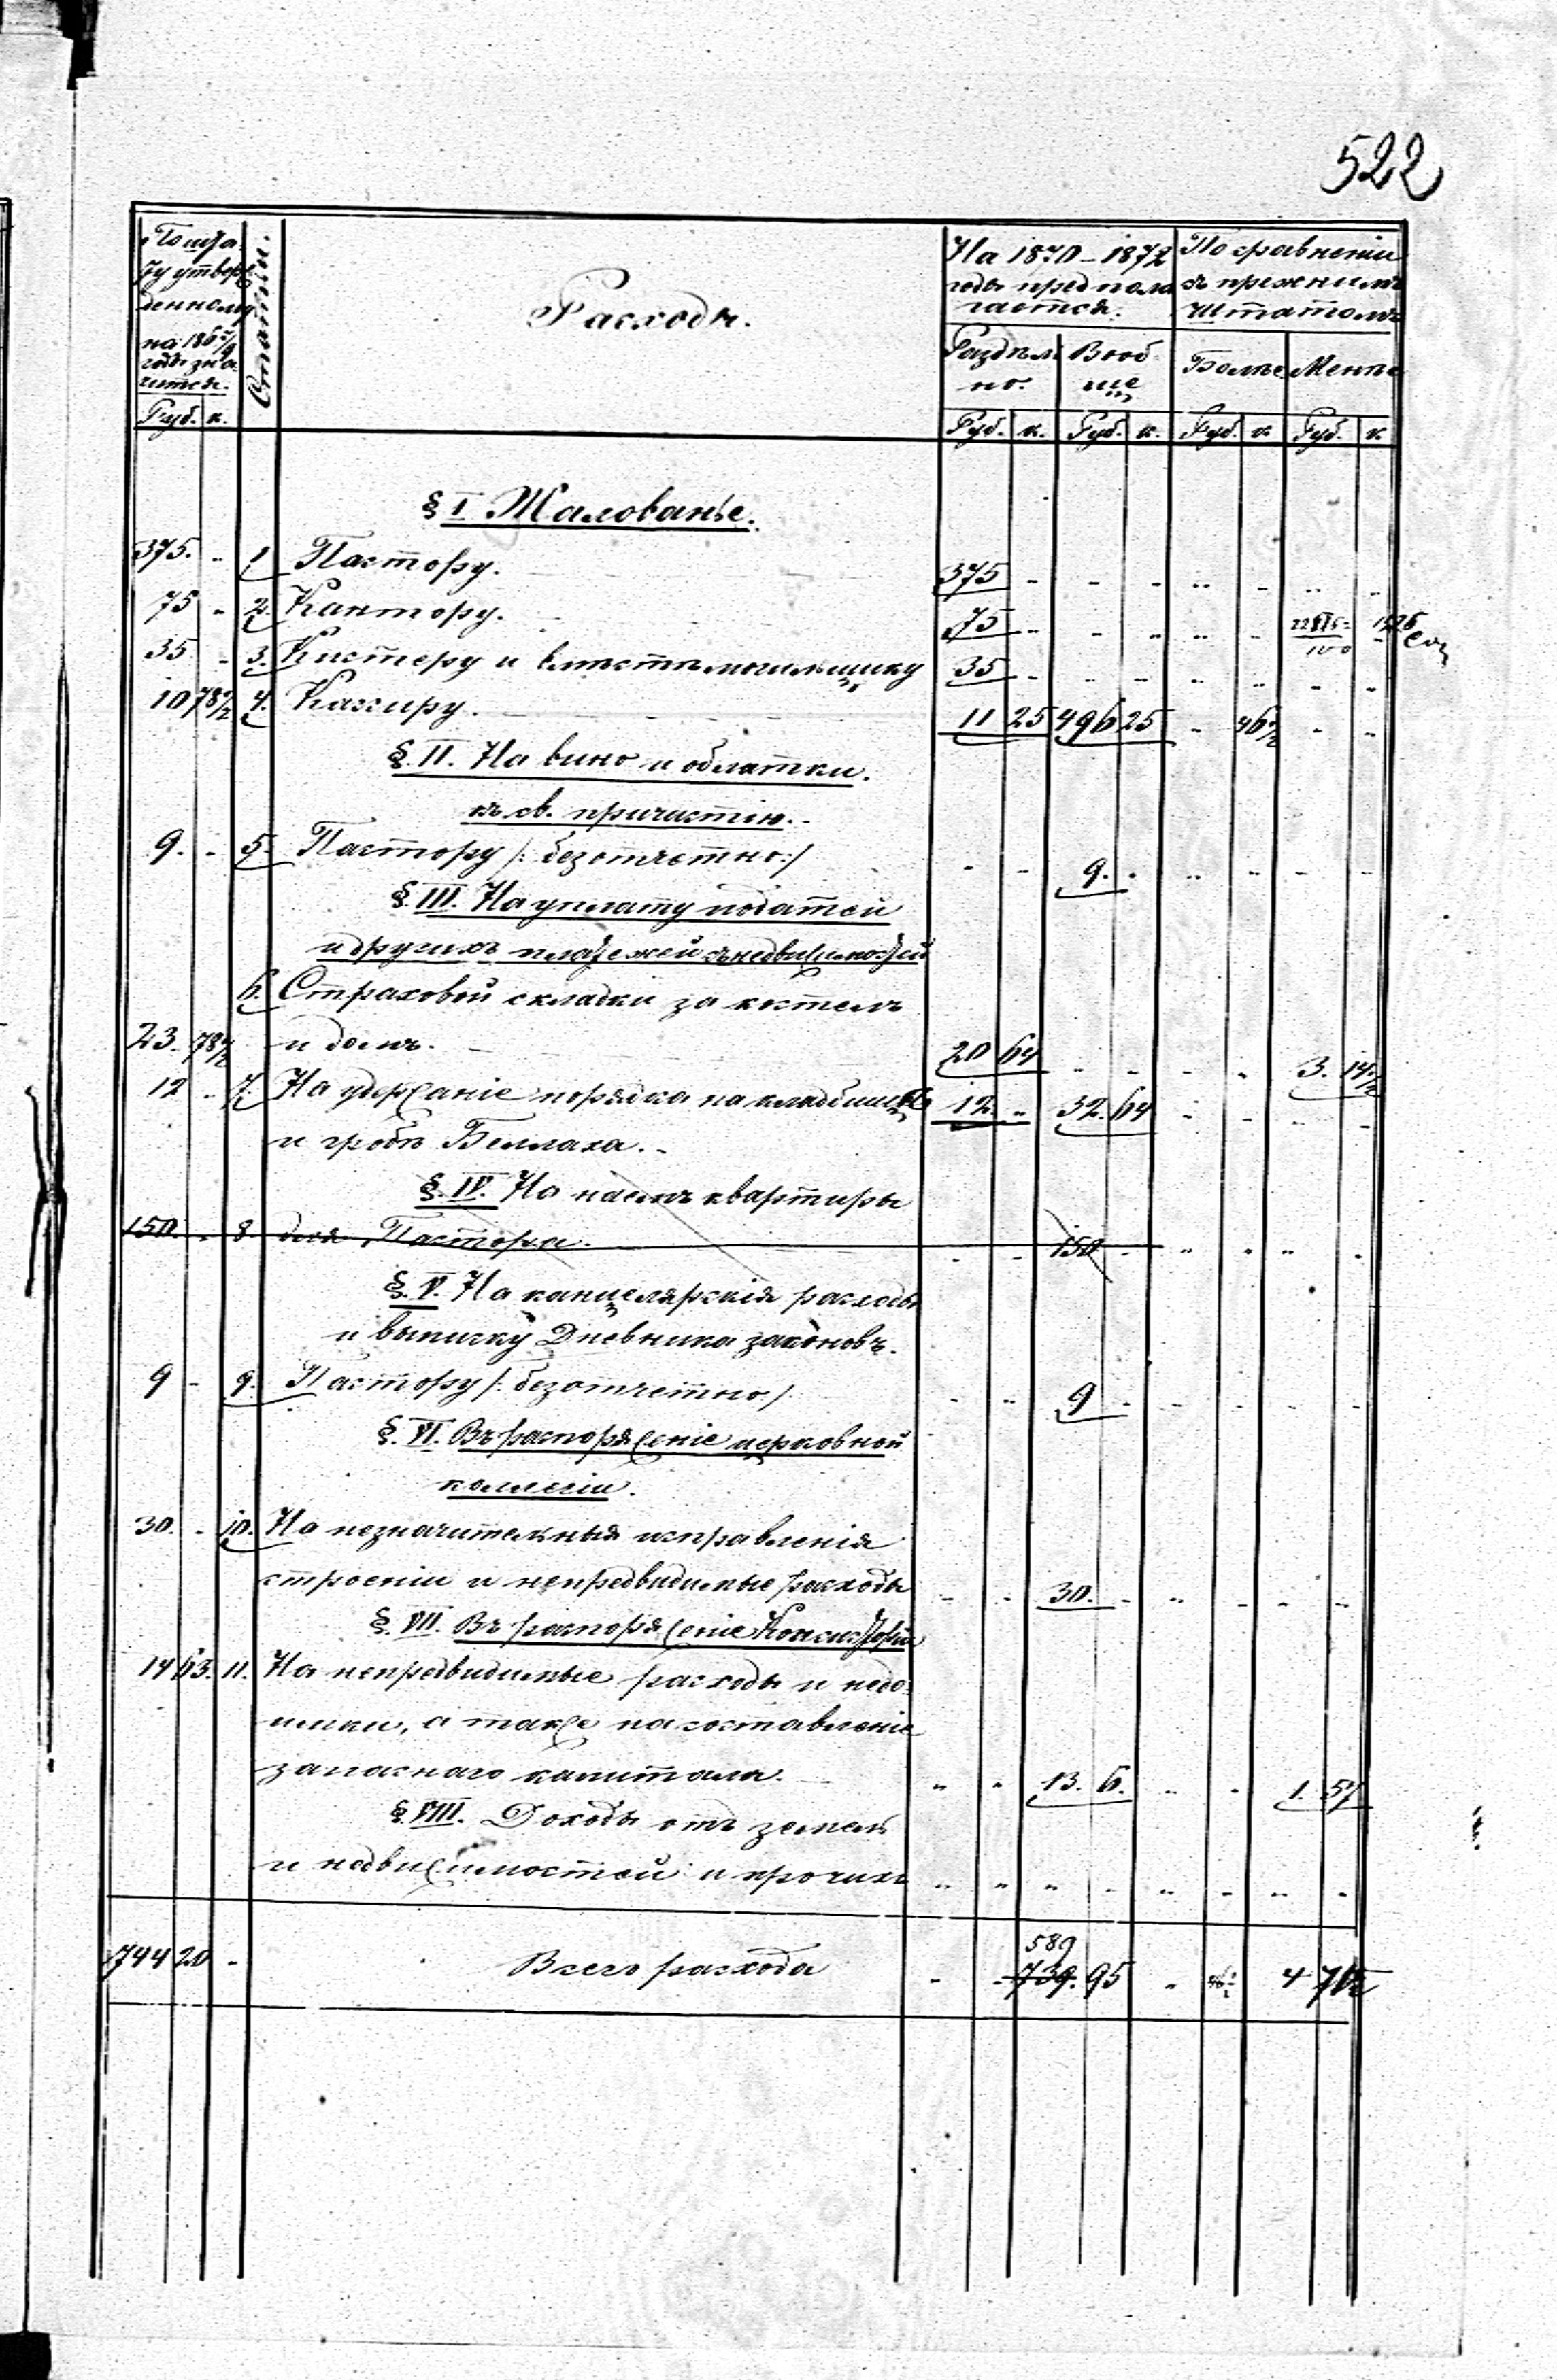 522
По шта-
ту утверж-
денному
на 1867/9
годы зна-
чится.
Статьи.
Расходы.
На 1870–1872
годы предпола
гается.
По сравненiи
съ прежнимъ
штатомъ
Раздѣль
но.
Вооб
ще
Болѣе Менѣе
Руб. к. Руб. к. Руб. к. Руб. к Руб. к
§ I Жалованье.
375. „ 1 Пастору. 375 „ „ „ „ „ „ „
75 „ 2. Кантору. 75 „ „ „ „ „
35 „ 3. Кистеру и вмѣстѣ могильщику 35 „ „ „ „ „ „ „
10 78½ 4. Кассиру. 11 25 496 25 „ 46½ „ „
§. II. На вино и облатки.
къ св. причастiю.
9. „ 5. Пастору /: безотчетно :/ „ „ 9. „ „ „ „ „
§. III. На уплату податей
и другихъ платежей съ недвижимостей
6. Страховой складки за костелъ
23. 78½ и домъ. 20 64 „ „ „ „ 3. 14½
12 „ 7. На удержанiе порядка на кладбищѣ 12 „ 32. 64 „ „ „ „
и гробѣ Беллаха.
§. IV. На наемъ квартиры
150. „ 8. для Пастора. „ „ 150 „ „ „ „ „
§. V. На канцелярскiя расходы
и выписку Дневника законовъ.
9 „ 9. Пастору /: безотчетно :/ „ „ 9 „ „ „ „ „
§. VI. Въ распоряженiе церковной
коллегiи.
30. „ 10. На незначительныя исправленiя
строенiи и непредвидимые расходы „ „ 30. „ „ „ „ „
§. VII. Въ распоряженiе Консисторiи
14 63. 11. На непредвидимые расходы и недо-
имки, а также на составленiе
запаснаго капитала. „ „ 13. 6. „ „ 1. 57
§. VIII. Доходы отъ земель
и недвижимостей и прочихъ „ „ „ „ „ „ „ „
589
744 20 „ Всего расхода „ „ 739. 95 „ 46½ 4 71½